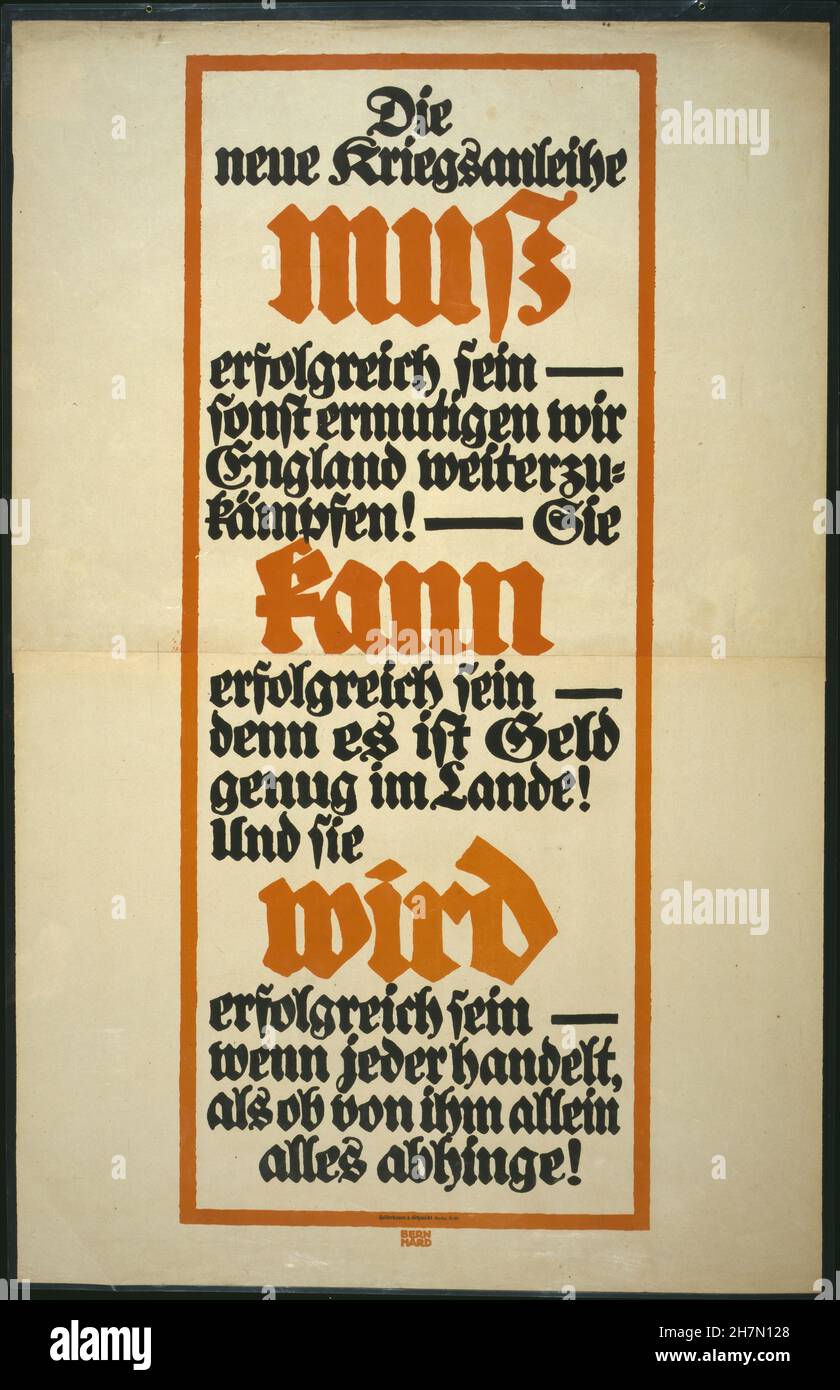 Die
neue Kriegsanleihe
muß
erfolgreich sein —
sonst ermutigen wir
England weiterzu=
kämpfen! — Sie
kann
erfolgreich sein —
denn es ist Geld
genug im Lande!
Und sie
wird
erfolgreich sein —
wenn jeder handelt,
als ob von ihm allein
alles abhinge!
BERN
HARD
alamy
Image ID: 2H7N128
www.alamy.com